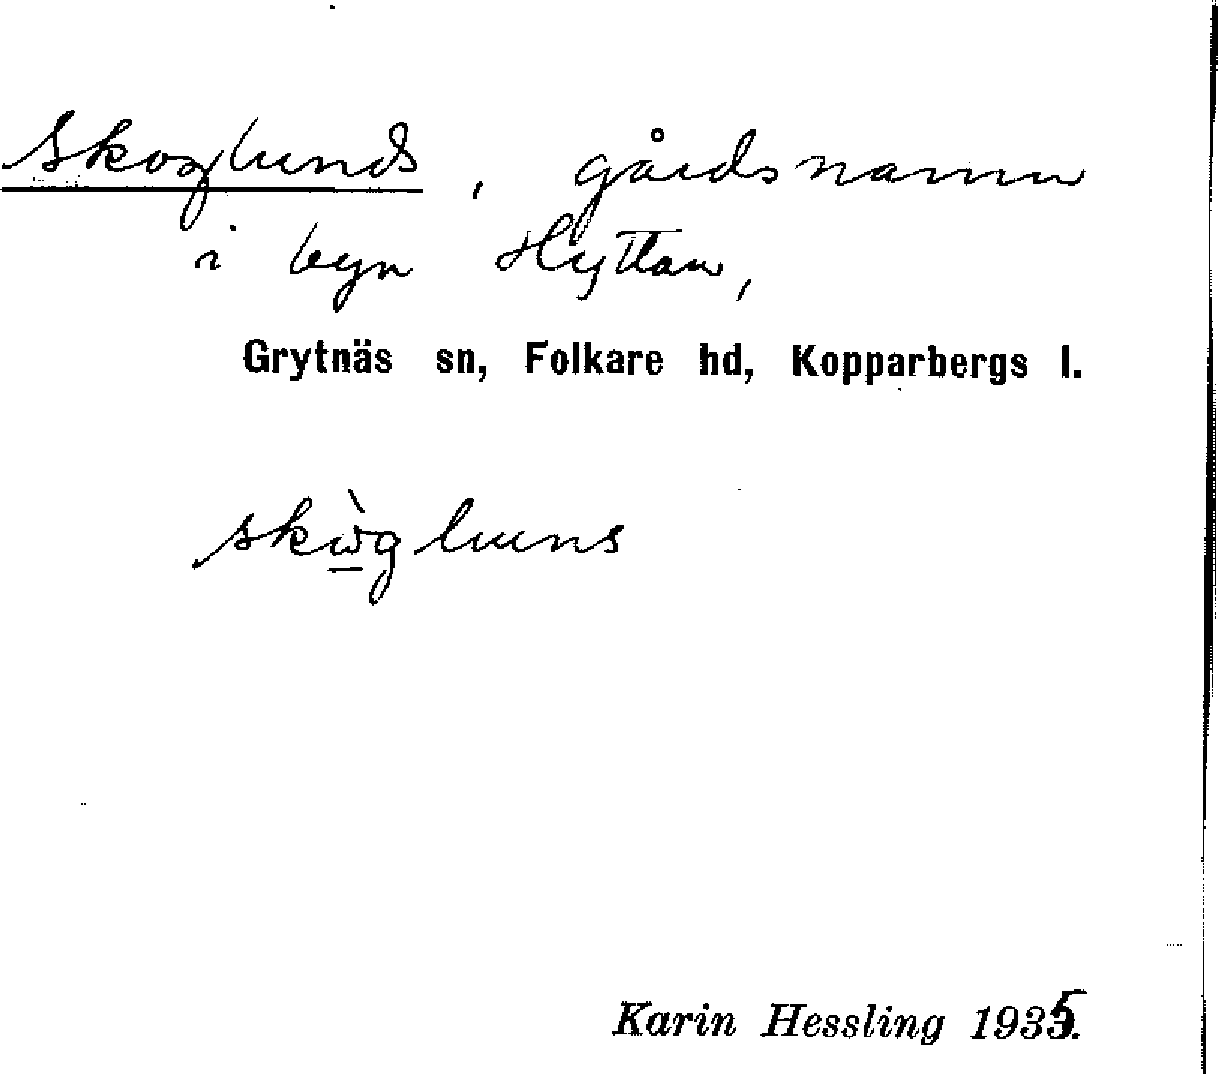 Skoglunds, gårdsnamn
i byn Hyttan,
Grytnäs sn, Folkare hd, Kopparbergs l.
skὼ̲gluns
Karin Hessling 1935.